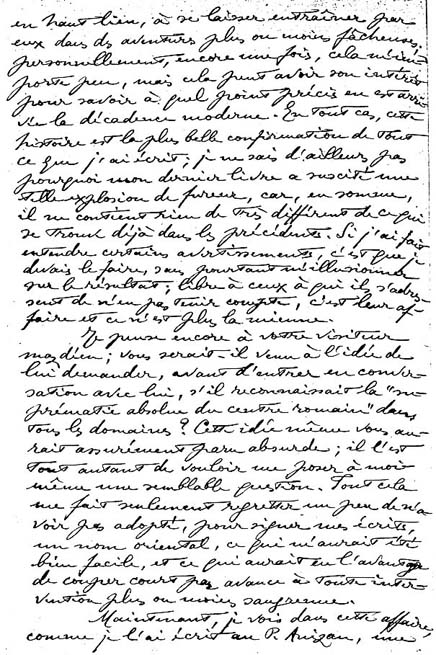 en haut lieu, à se laisser entraîner par
eux dans ds aventures plus ou moins fâcheuses.
personnellement, encore une fois, cela m'im-
porte peu, mais cela peut avoir son intérêt
pour savoir à quel point précis en est arri-
vée la décadence moderne. En tout cas, cette
histoire est la plus belle confirmation de tout
ce que j'ai écrit; je ne sais d'ailleurs pas
pourquoi mon dernier livre a suscité une
telle explosion de fureur, car, en somme,
il ne contient rien de très différent de ce qui
se trouve déjà dans les précédents. Si j'ai fait
entendre certains avertissements, c'est que je
devais le faire, sans pourtant m'illusionner
sur le résultat; libre à ceux à qui il s'adres-
sent de n'en pas tenir compte, c'est leur af-
faire et ce n'est plus la mienne.
Je pense encore à votre visiteur
mazdéen; vous serait-il venu à l'idée de
lui demander, avant d'entrer en conver-
sation avec lui, s'il reconnaissait la "su-
prématie absolue du centre romain" dans
tous les domaines? Cette idée même vous au-
rait assurément paru absurde; il l'est
tout autant de vouloir me poser à moi-
même une semblable question. Tout cela
me fait seulement regretter un peu de n'a-
voir pas adopté, pour signer mes écrits,
un nom oriental, ce qui m'aurait été
bien facile, et ce qui aurait eu l'avantage
de couper court par avance à toute inter-
vention plus ou moins saugrenue.
Maintenant, je vois dans cette affaire,
comme je l'ai écrit au P. Anizan, une